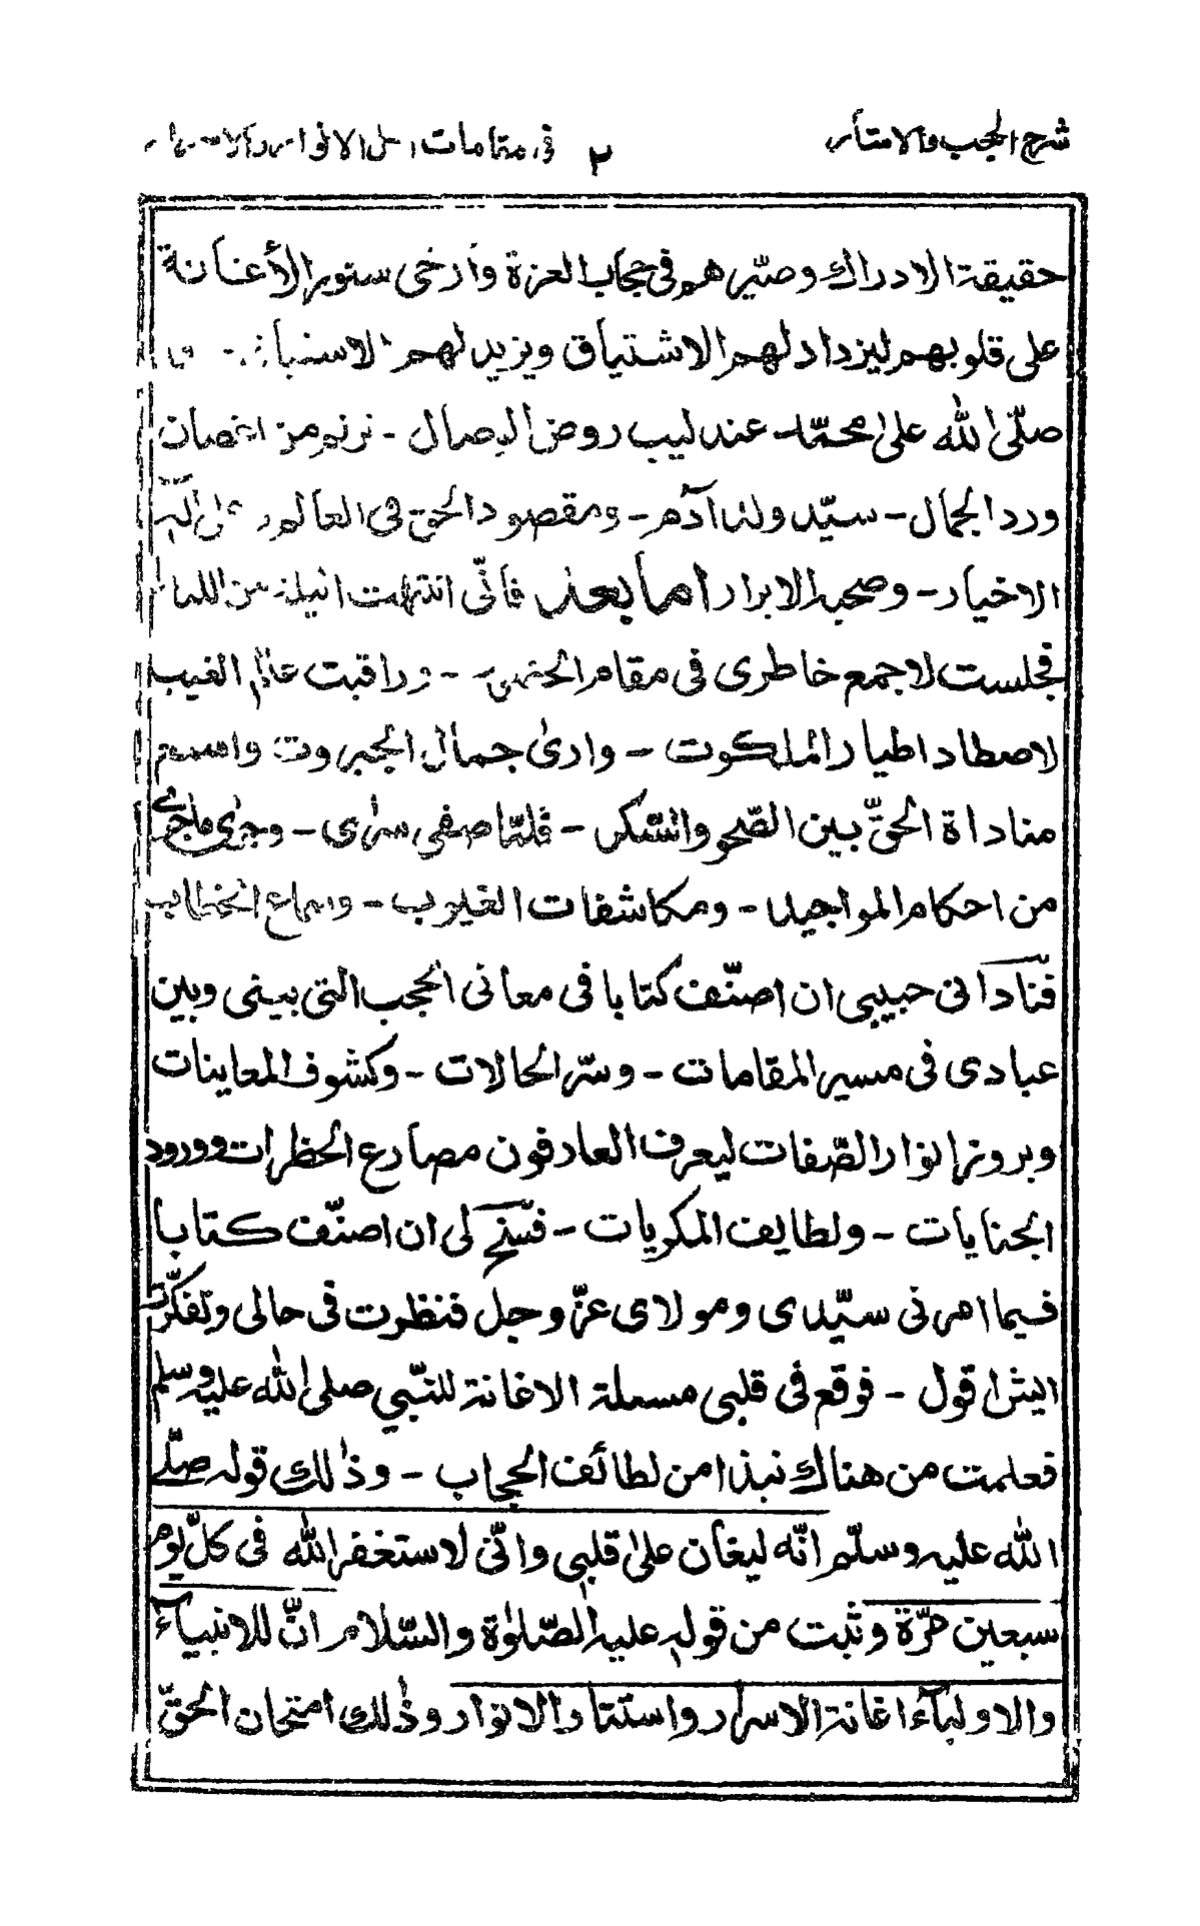 شرح الحجب والاستار ٢ فى مقامات اهل الانوار والاسرار
حقيقة الادراك وصيّرهم فى حجاب العزة وأرخى ستور الأغانة
على قلوبهم ليزداد لهم الاشتياق ويزيد لهم
صلّى الله على محمّد عندليب روض الوصال - ترنم من اغصان
ورد الجمال - سيّد ولد آدم - ومقصود الحق فى العالم
الاخيار - وصحبه الابرار اما بعد فانّى انتبهت ليلة من الليالى
فجلست لاجمع خاطرى فى مقام - وراقبت عالم الغيب
لاصطاد اطيار الملكوت - وارىٰ جمال الجبروت واسمع
مناداة الحقّ بين الصّحو والسّكر - فلمّا صفى سرّى - وجرىٰ ماجرىٰ
من احكام المواجيد - ومكاشفات الغيوب - وسماع الخطاب
فنادانى حبيبى ان اصنّف كتابا فى معانى الحجب التى بينى وبين
عبادى فى مسير المقامات - وسرّ الحالات - وكشوف المعاينات
وبروز انوار الصّفات ليعرف العارفون مصارع الخطرات وورود
الجنايات - ولطايف المكريات - فسنح لى ان اصنّف كتابا
فيما امرنى سيّدى ومولاى عزّ وجل فنظرت فى حالى وتفكّرت
ايش اقول - فوقع فى قلبى مسئلة الاغانة للنّبي صلى الله عليه وسلم
فعلمت من هناك نبذا من لطائف الحجاب - وذٰلك قوله صلّى
الله عليه وسلّم انّه ليغان علىٰ قلبى وانّى لاستغفر الله فى كلّ يوم
سبعين مرّة وثبت من قوله عليه الصّلوٰة والسّلام انّ للانبياء
والاولياء اغانة الاسرار واستتار الانوار وذٰلك امتحان الحقّ